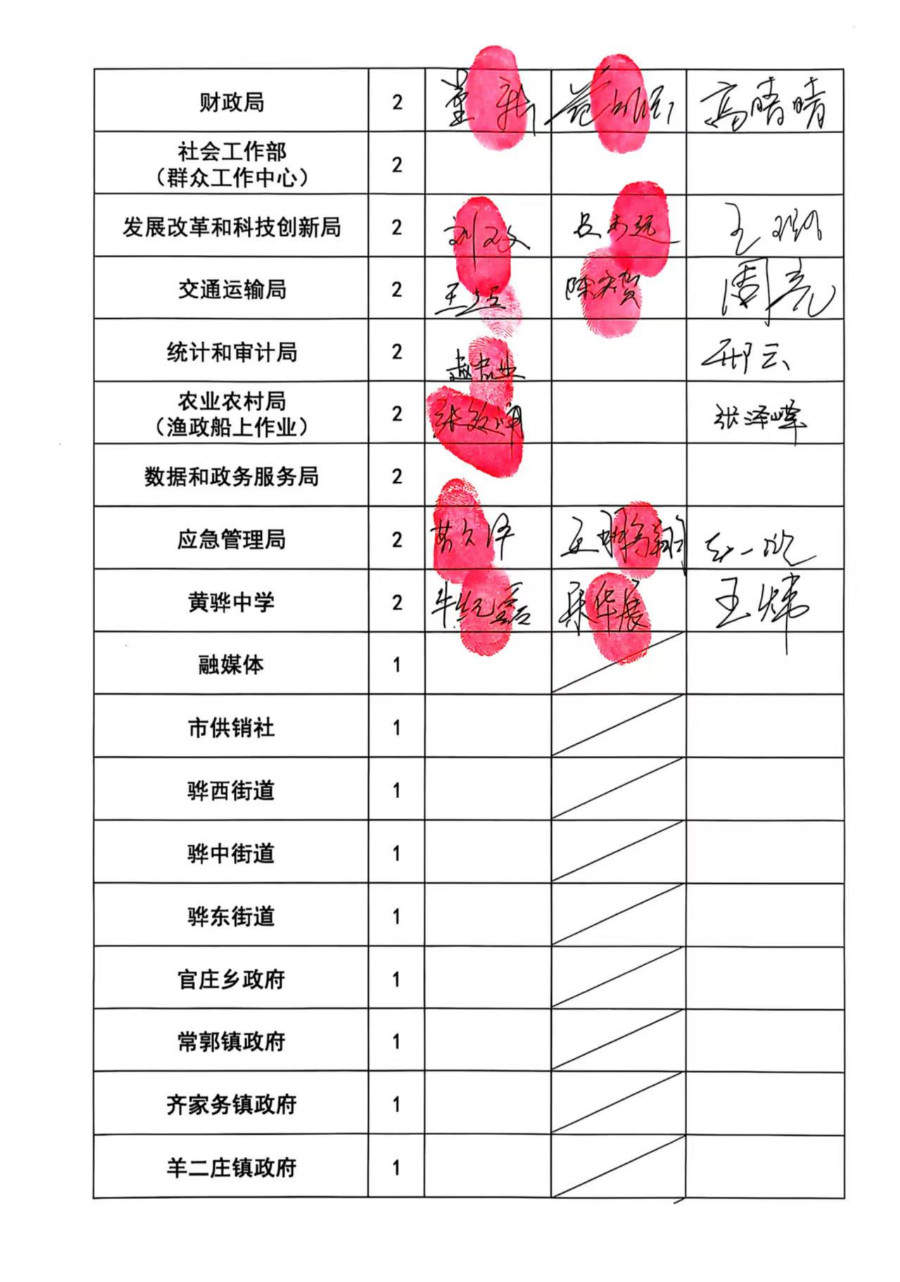 财政局 2 董新 高晴晴
社会工作部
（群众工作中心） 2
发展改革和科技创新局 2 刘 吕 王
交通运输局 2 王 陈宏贺 周亮
统计和审计局 2 赵 邢云
农业农村局
（渔政船上作业） 2 张 张泽峰
数据和政务服务局 2
应急管理局 2 王翔
黄骅中学 2 牛纪磊 华展 王炜
融媒体 1
市供销社 1
骅西街道 1
骅中街道 1
骅东街道 1
官庄乡政府 1
常郭镇政府 1
齐家务镇政府 1
羊二庄镇政府 1